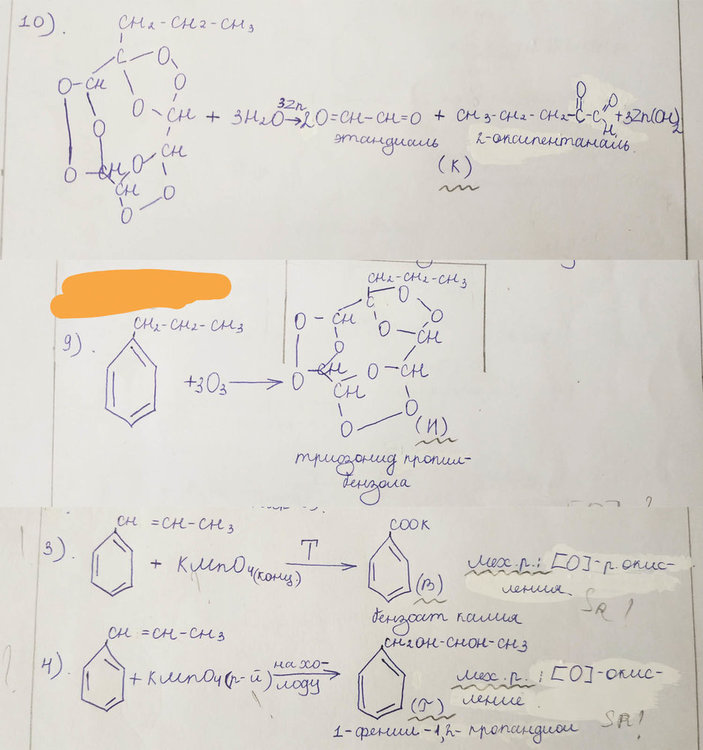 10).
CH2-CH2-CH3
C - O
O - CH O
O O - CH
+ 3H2O 3Zn → 2O=CH-CH=O + CH3-CH2-CH2-C-C + 3Zn(OH)2
O O H
этандиаль 2-оксипентаналь.
CH
O - CH O
CH O
O
(К)
CH2-CH2-CH3
9).
CH2-CH2-CH3
+3O3 →
C O
O - CH O
O O - CH
O CH O - CH
CH
O O
(И)
триозонид пропил-
бензола
3).
CH =CH-CH3
+ KMnO4(конц) T →
COOK
(В)
бензоат калия
Мех.р.: [O]-р.окис-
ления
SR!
4).
CH =CH-CH3
+ KMnO4(р-й) на хо-
лоду →
CH2OH-CHOH-CH3
(Г)
1-фенил-1,2-пропандиол
Мех.р.: [O]-окис-
ление.
SR!